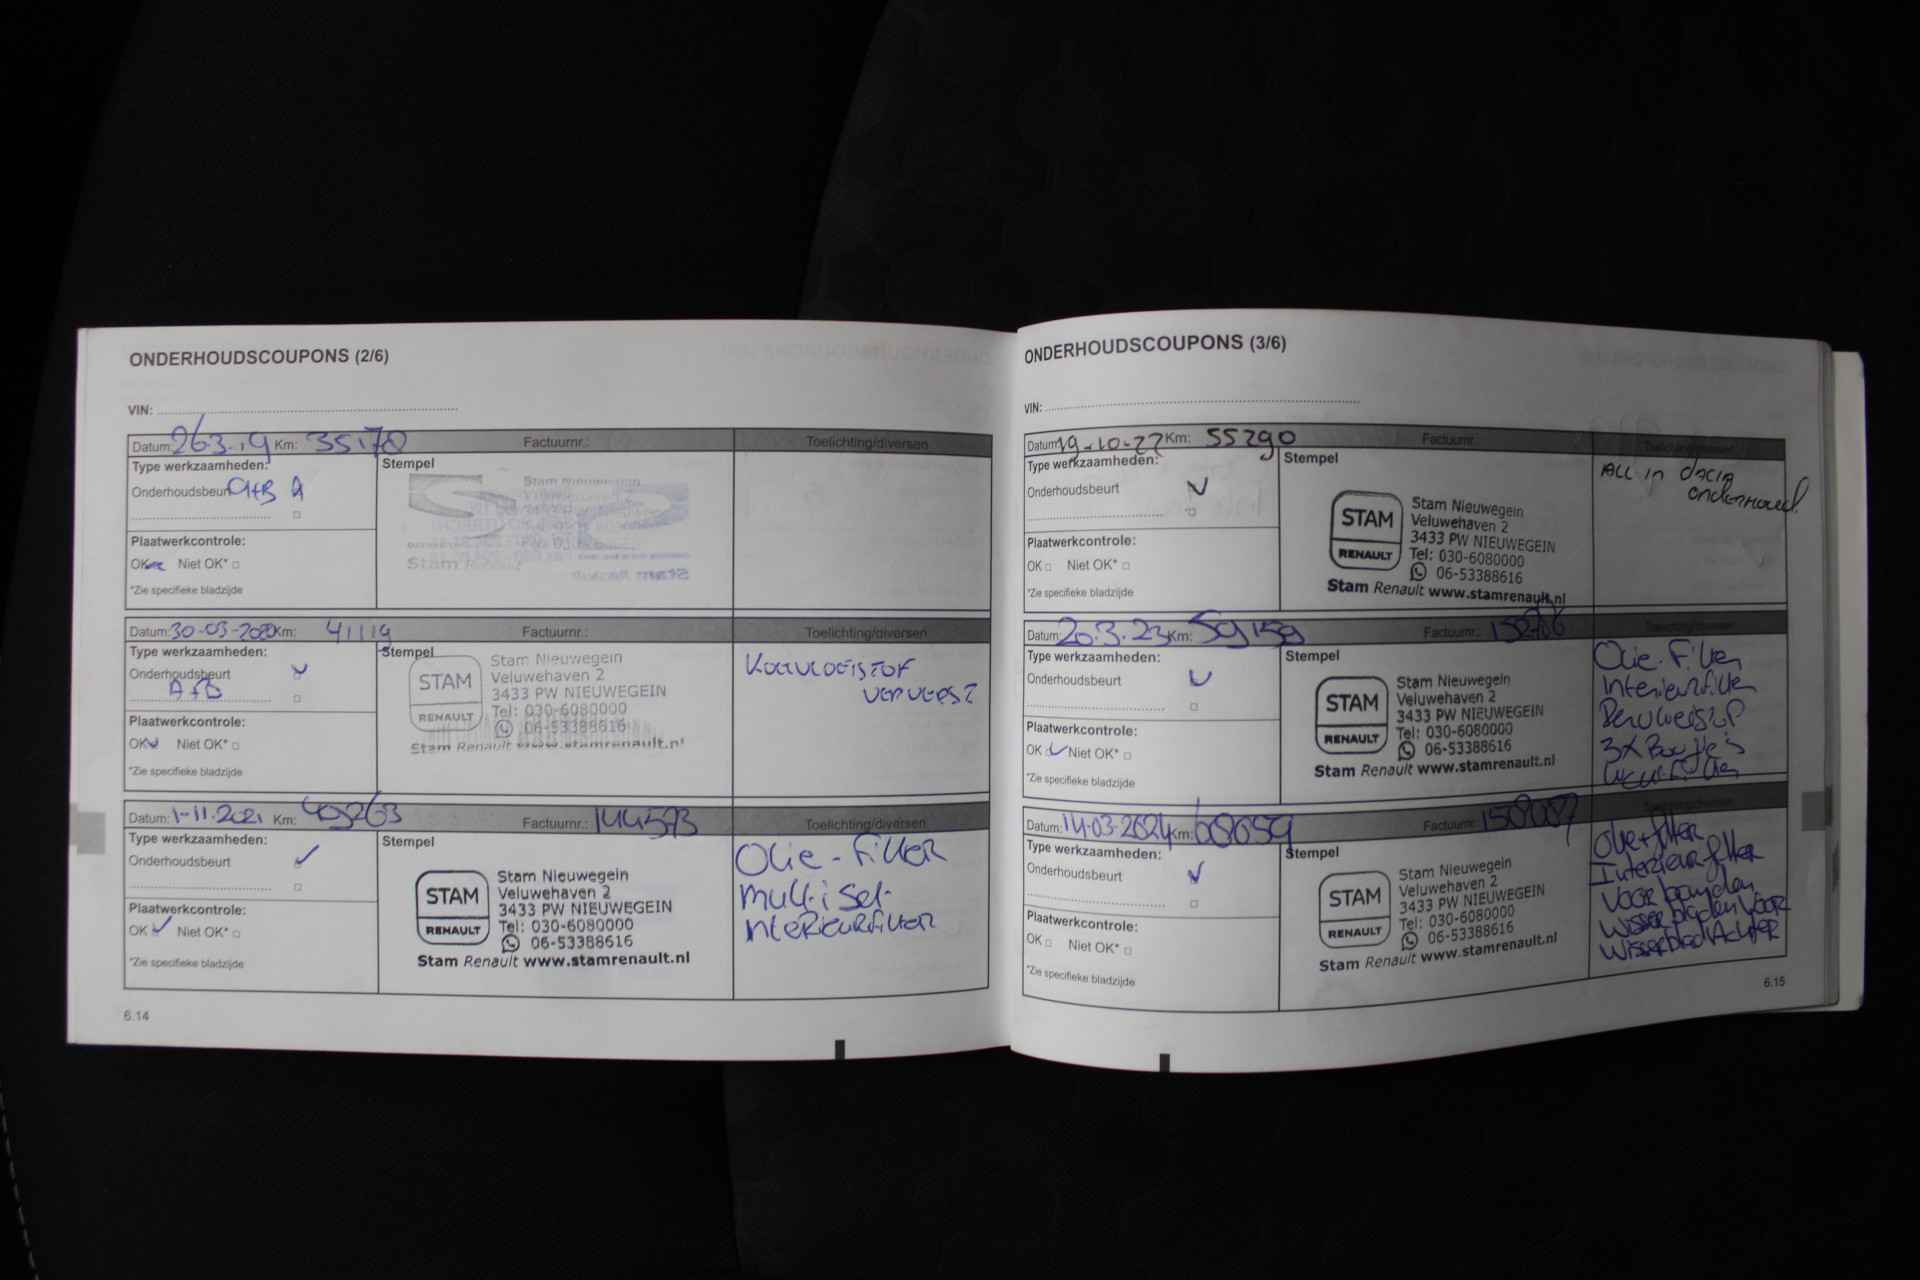 ONDERHOUDSCOUPONS (2/6)
VIN:
Datum: 26.3.19 Km: 35170 Factuurnr.: Toelichting/diversen
Type werkzaamheden: Stempel
Onderhoudsbeurt A+B
Plaatwerkcontrole:
OK Niet OK*
*Zie specifieke bladzijde
Stam Nieuwegein
Stam Renault
Datum: 30-03-2020 Km: 41119 Factuurnr.: Toelichting/diversen
Type werkzaamheden: Stempel
Onderhoudsbeurt
A+B
Plaatwerkcontrole:
OK Niet OK*
*Zie specifieke bladzijde
STAM
RENAULT
Stam Nieuwegein
Veluwehaven 2
3433 PW NIEUWEGEIN
Tel: 030-6080000
06-53388616
Stam Renault www.stamrenault.nl
KOELVLOEISTOF
VERVERST
Datum: 1-11-2021 Km: 49263 Factuurnr.: 144573 Toelichting/diversen
Type werkzaamheden: Stempel
Onderhoudsbeurt
Plaatwerkcontrole:
OK Niet OK*
*Zie specifieke bladzijde
STAM
RENAULT
Stam Nieuwegein
Veluwehaven 2
3433 PW NIEUWEGEIN
Tel: 030-6080000
06-53388616
Stam Renault www.stamrenault.nl
Olie-Filter
multi set
interieurfilter
6.14
ONDERHOUDSCOUPONS (3/6)
VIN:
Datum: 19-10-22 Km: 55290 Factuurnr.
Type werkzaamheden: Stempel
Onderhoudsbeurt
Plaatwerkcontrole:
OK Niet OK*
*Zie specifieke bladzijde
STAM
RENAULT
Stam Nieuwegein
Veluwehaven 2
3433 PW NIEUWEGEIN
Tel: 030-6080000
06-53388616
Stam Renault www.stamrenault.nl
ALL in dACIA
onderhoud.
Datum: 20.3.23 Km: 59159 Factuurnr.
Type werkzaamheden: Stempel
Onderhoudsbeurt
Plaatwerkcontrole:
OK Niet OK*
*Zie specifieke bladzijde
STAM
RENAULT
Stam Nieuwegein
Veluwehaven 2
3433 PW NIEUWEGEIN
Tel: 030-6080000
06-53388616
Stam Renault www.stamrenault.nl
Olie-Filter
Interieurfilter
Remvloeistof
3x Bougie's
Luchtfilter
Datum: 14-03-2024 Km: 68659 Factuurnr. 158087
Type werkzaamheden: Stempel
Onderhoudsbeurt
Plaatwerkcontrole:
OK Niet OK*
*Zie specifieke bladzijde
STAM
RENAULT
Stam Nieuwegein
Veluwehaven 2
3433 PW NIEUWEGEIN
Tel: 030-6080000
06-53388616
Stam Renault www.stamrenault.nl
Olie+filter
Interieurfilter
Voor banden
Wisserbladen Voor
Wisserblad Achter
6.15